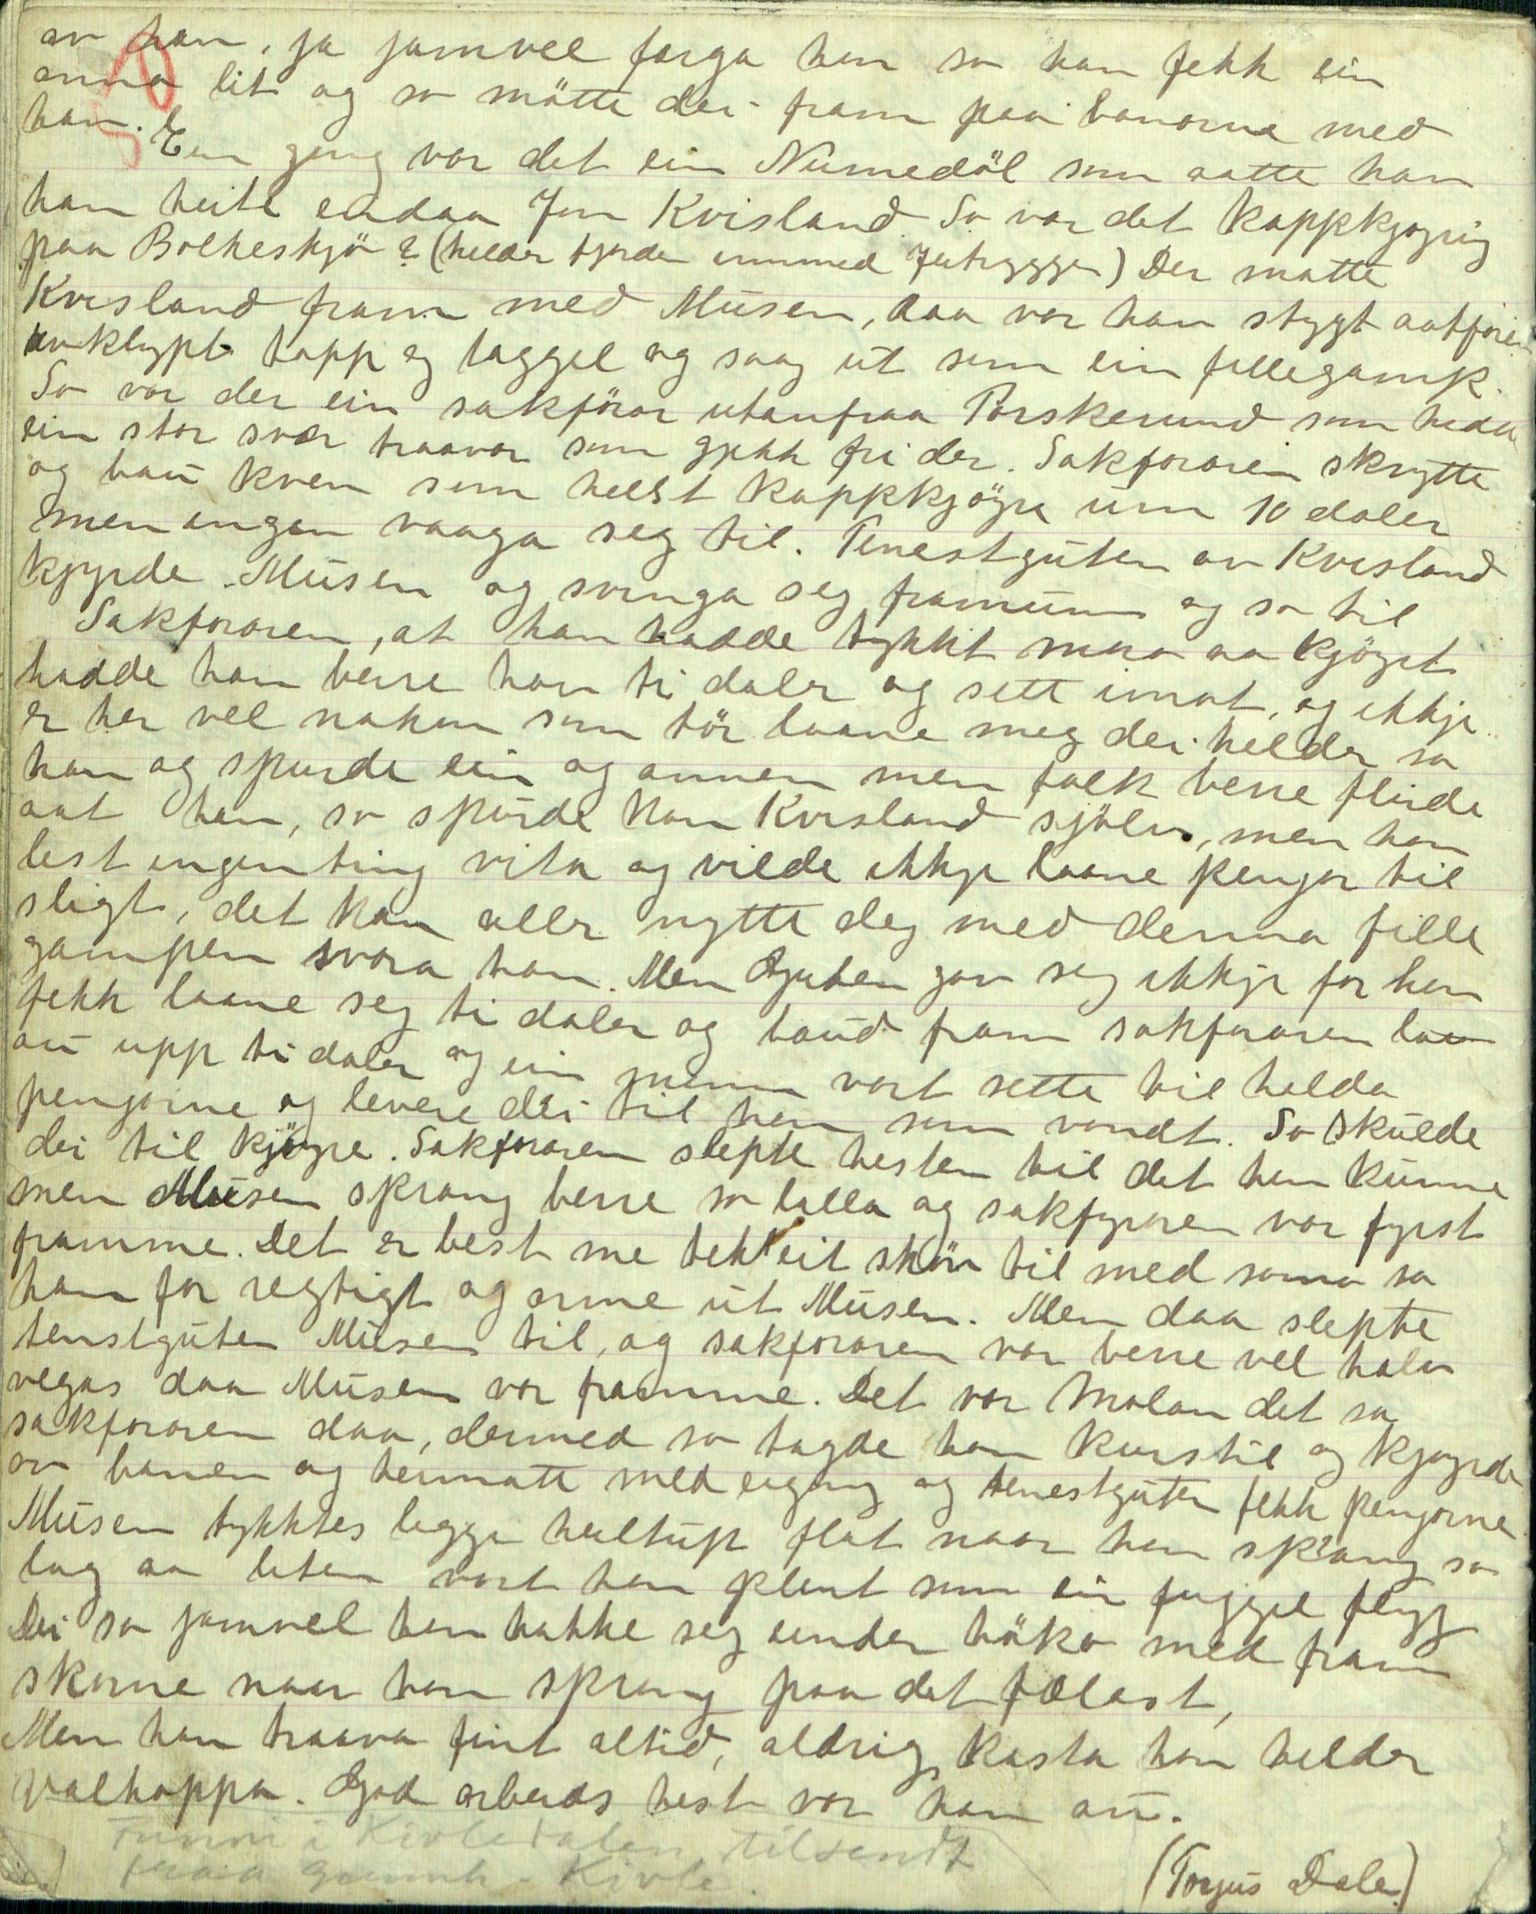 av han, ja jamvel farga han so han fekk ein
anna lit og so møtte dei fram paa banorne med
han. Ein gong var det ein Numedöl som aatte han
han heite endaa Jon Kvisland. So var det kappkjøyring
paa Bolkeskjø? (helder fjorden innmed Jutryggen) Der møtte
Kvisland fram med Musen, daa var han stygt aatfaren
avklypt topp og taggel og saag ut som ein fillegamp.
So var der ein sakförar utanfraa Torskerund som hadde
ein stor svær traavar som gjekk fri der. Sakföraren skrytte
og bau kven som helst kappkjöyre um 10 daler
men ingen vaaga seg til. Tenestguten av Kvisland
kjyrde Musen og svinga seg framum og sa til
Sakföraren, at han hadde tykkt mora aa kjöyrt
hadde han berre havt ti daler og sett imot, og ikkje
er her vel nokon som tör laane meg dei helder sa
han og spurde ein og annen men folk berre flirde
aat han, so spurde han Kvisland sjölv, men han
lest ingenting vita og vilde ikkje laane pengar til
sligt, det kan aller nytte deg med denna fille
gampen svara han. Men Guten gav seg ikkje før han
fekk laane seg ti daler og baud fram sakföraren la
au upp ti daler og ein mann vart sette til halda
pengarne og levere dei til han som vandt. So skulde
dei til kjöyre. Sakföraren slepte hesten til det han kunne
men Musen sprang berre so lalla og sakfyraren var fyrst
framme. Det er best me tek eit skör til med sama sa
han for regtigt og arme ut Musen. Men daa slepte
tenstguten Musen til, og sakföraren var berre vel halv
vegas daa Musen var framme. Det var Molan det sa
sakföraren daa, dermed so tagde han kurstil og kjøyrde
av banen og heimatt med eigong og tenestguten fekk pengarne
Musen tykktes legge heiltup flat naar han sprang so
lag aa liten vart han plent som ein fuggel flyg
Dei sa jamvel han hakke seg under höka med fram
skorne naar han sprang paa det fælast,
Men han traava fint altid, aldrig kasta han helder
Valhoppa. God arbeids hest var han au.
Funni i Kivledalen tilsendt
fraa Gunnh. Kivle.
(Torjus Dale)